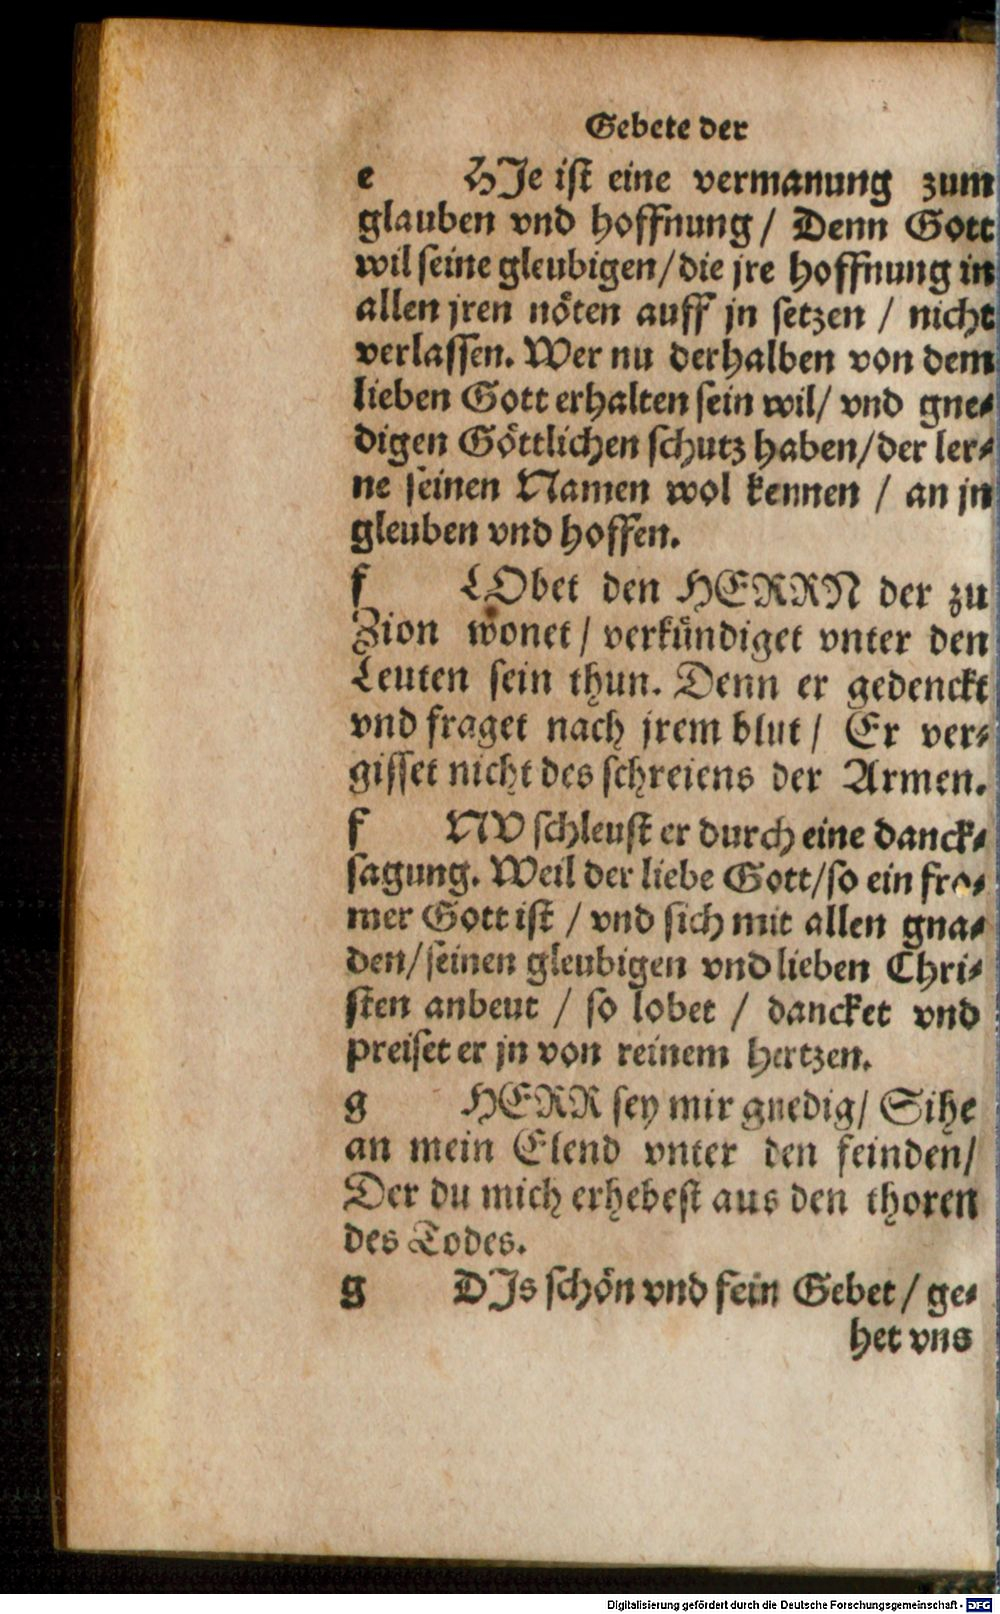 Gebete der
e HJe iſt eine vermanung zum
glauben vnd hoffnung / Denn Gott
wil ſeine gleubigen / die jre hoffnung in
allen jren nöten auff jn ſetzen / nicht
verlaſſen. Wer nu derhalben von dem
lieben Gott erhalten ſein wil / vnd gne⸗
digen Göttlichen ſchutz haben / der ler⸗
ne ſeinen Namen wol kennen / an jn
gleuben vnd hoffen.
f LObet den HERRN der zu
Zion wonet / verkündiget vnter den
Leuten ſein thun. Denn er gedenckt
vnd fraget nach jrem blut / Er ver⸗
giſſet nicht des ſchreiens der Armen.
f NV ſchleuſt er durch eine danck⸗
ſagung. Weil der liebe Gott / ſo ein fro⸗
mer Gott iſt / vnd ſich mit allen gna⸗
den / ſeinen gleubigen vnd lieben Chri⸗
ſten anbeut / ſo lobet / dancket vnd
preiſet er jn von reinem hertzen.
g HERR ſey mir gnedig / Sihe
an mein Elend vnter den feinden /
Der du mich erhebeſt aus den thoren
des Todes.
g DJs ſchön vnd fein Gebet / ge⸗
het vns
Digitalisierung gefördert durch die Deutsche Forschungsgemeinschaft - DFG